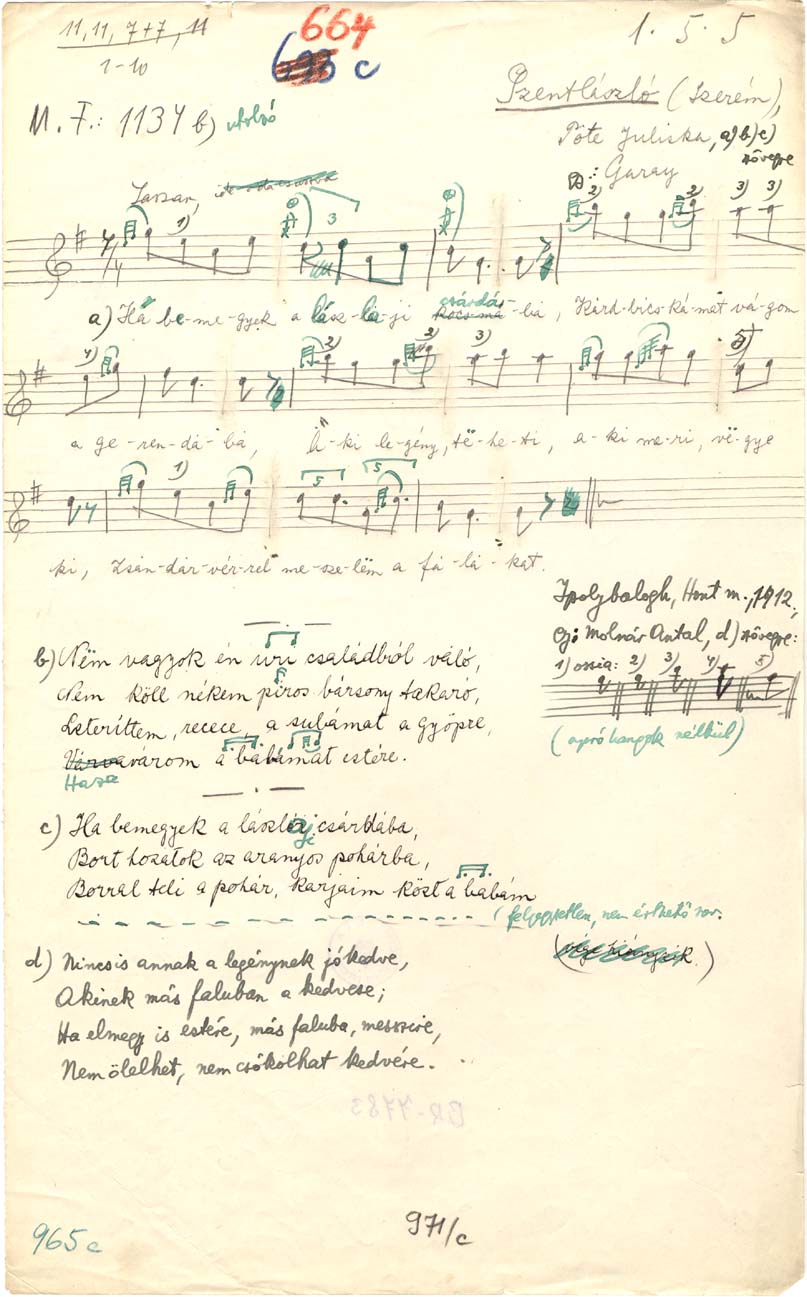 11, 11, 7+7, 11
1-10
664
c
1. 5. 5
M. F.: 1134 b) utolsó
Szentlászló (Szerém),
Póte Juliska, a) b) c) szövegre
Garay
Lassan,
a) Ha be-me-gyek a lász-la-ji csárdás-ba, Kard-bics-ká-mat vá-gom
a ge-ren-dá-ba, A-ki le-gény, të-he-ti, a-ki me-ri, vë-gye
ki, Zsán-dár-vér-rel me-sze-lëm a fa-la-kat.
Ipolybalogh, Hont m., 1912.,
Gy: Molnár Antal, d) szövegre:
1) ossia: 2) 3) 4) 5)
(apróhangok nélkül)
b) Nëm vagyok én uru családból való,
Nem köll nékem piros bársony takaró,
Leteríttem, recece, a subámat a gyöpre,
Várvavárom a babámat estére.
Haza
c) Ha bemegyek a lászlaji csárdába,
Bort hozatok az aranyos pohárba,
Borral teli a pohár, karjaim közt a babám
(feljegyzetlen, nem érthető sor.
d) Nincs is annak a legénynek jó kedve,
Akinek más faluban a kedvese;
Ha elmegy is estére, más faluba, messzire,
Nem ölelhet, nem csókolhat kedvére.
BR-7783
971/c
965c